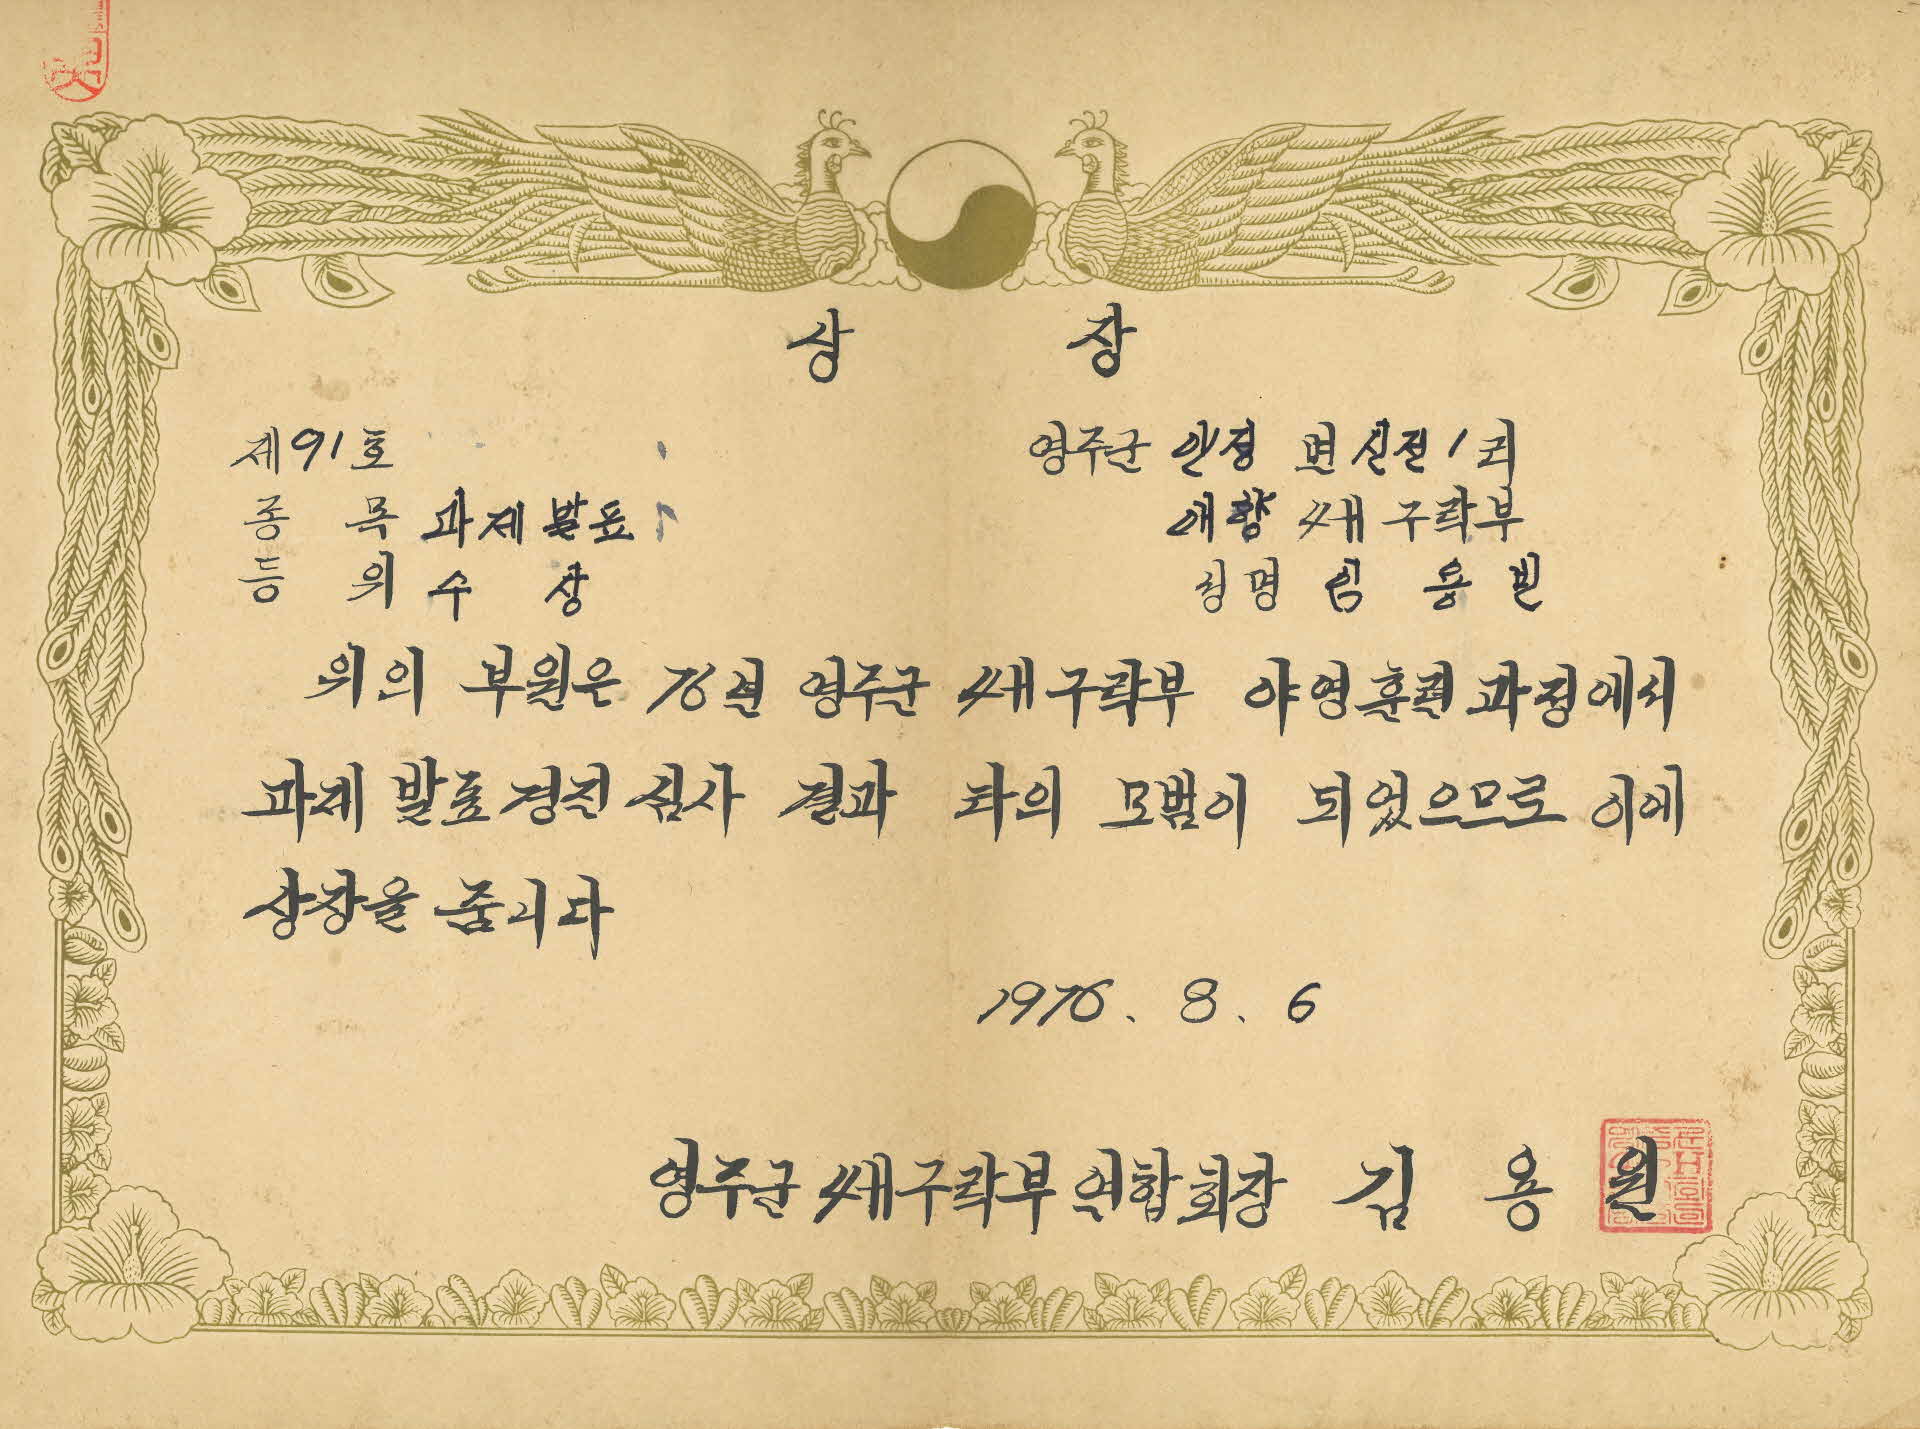 상 장
제91호
종 목 과제발표
등 위 수 상
영주군 안정 면 신전1리
애향 4H 구락부
성명 임 용 빈
위의 부원은 76년 영주군 4H구락부 야영훈련과정에서
과제 발표경진 심사 결과 타의 모범이 되었으므로 이에
상장을 줍니다
1976. 8. 6
영주군 4H구락부 연합회장 김 용 원